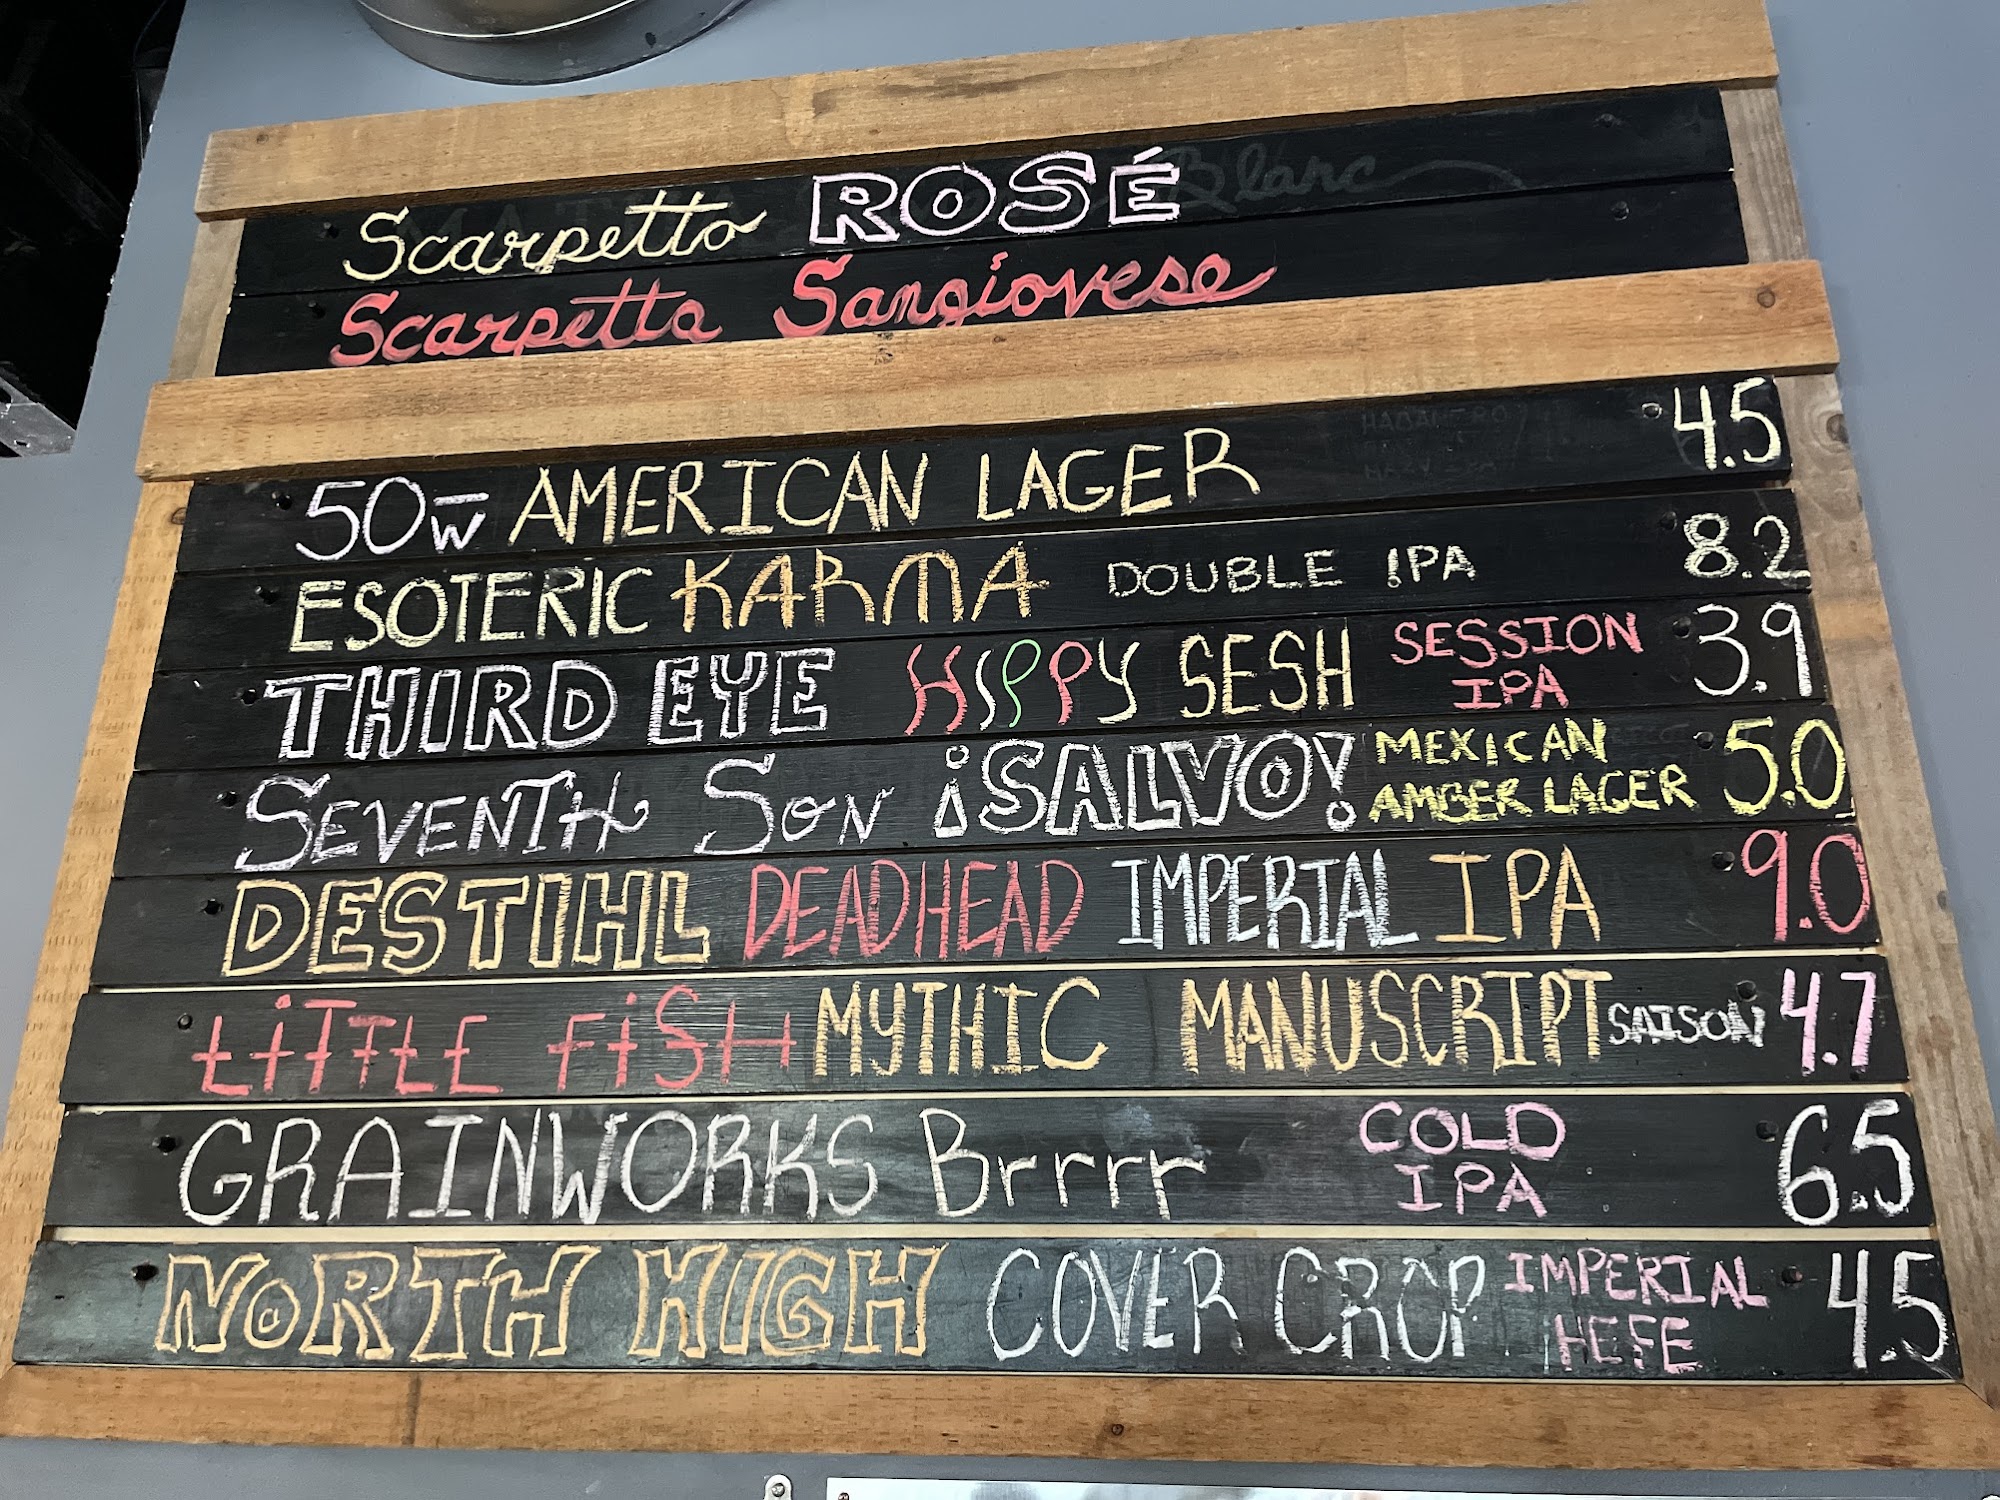 Scarpetto ROSÉ Blanc
Scarpetta Sangiovese
50W AMERICAN LAGER 4.5
ESOTERIC KARMA DOUBLE IPA 8.2
THIRD EYE HIPPY SESH SESSION IPA 3.9
SEVENTH SON ¡SALVO! MEXICAN AMBER LAGER 5.0
DESTIHL DEADHEAD IMPERIAL IPA 9.0
LiTTLE FiSH MYTHIC MANUSCRIPT SAISON 4.7
GRAINWORKS Brrrrr COLD IPA 6.5
NORTH HIGH COVER CROP IMPERIAL HEFE 4.5